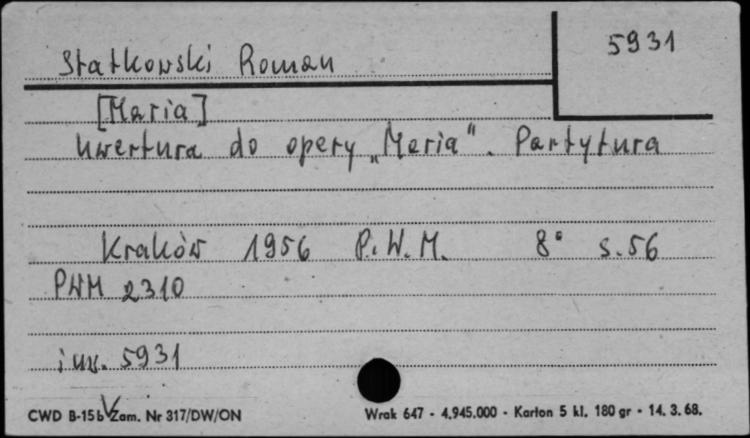 5931
Statkowski Roman
[Maria]
Uwertura do opery „Maria". Partytura
Kraków 1956 P.W.M. 8° s. 56
PWM 2310
inw. 5931
CWD B-15b Zam. Nr 317/DW/ON Wrak 647 - 4.945.000 - Karton 5 kl. 180 gr - 14. 3. 68.